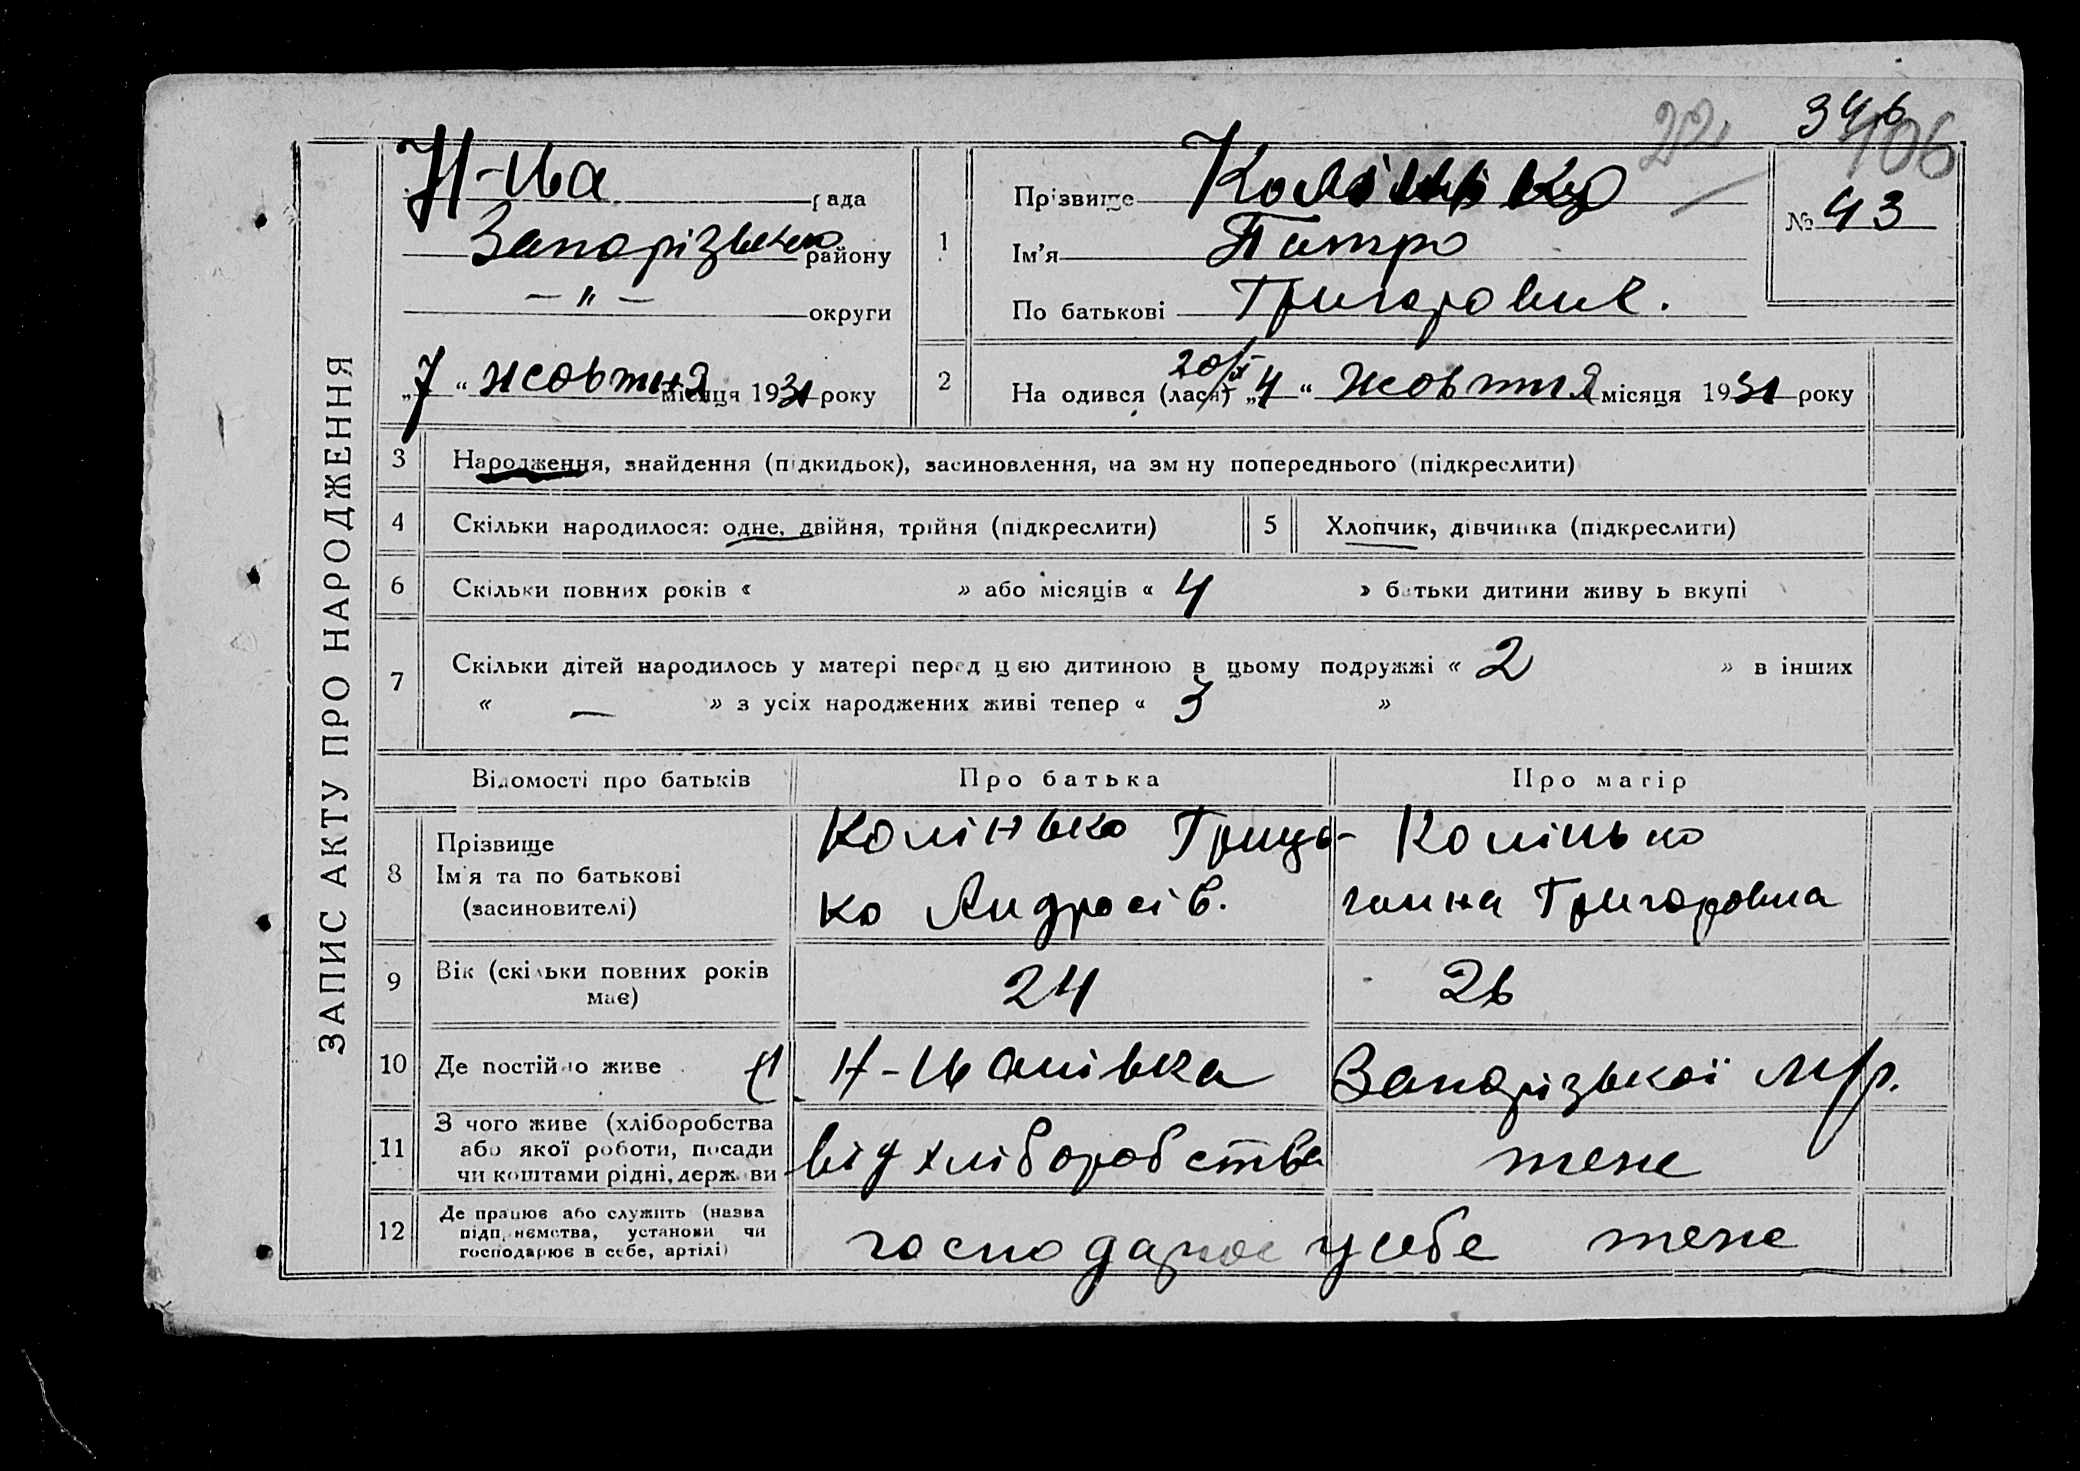 22 346
106
ЗАПИС АКТУ ПРО НАРОДЖЕННЯ
Н-Ива рада
Запорізького району
— " — округи
„7“ жовтня місяця 1931 року
1
Прізвище Колінько
Ім'я Петро
По батькові Григорович.
№ 43
2 На одився (лася) 20/IX „4“ жовтня місяця 1931 року
3 Народження, знайдення (підкидьок), засиновлення, на зм ну попереднього (підкреслити)
4 Скільки народилося: одне, двійня, трійня (підкреслити) 5 Хлопчик, дівчинка (підкреслити)
6 Скільки повних років « » або місяців « 4 » батьки дитини живу ь вкупі
7 Скільки дітей народилось у матері перед цією дитиною в цьому подружжі « 2 » в інших
« — » з усіх народжених живі тепер « 3 »
Відомості про батьків Про батька Про матір
8 Прізвище
Ім'я та по батькові
(засиновителі)
Колінько Грицько Андросів.
Колінько ганна Григоровна
9 Вік (скільки повних років має) 24 26
10 Де постійно живе Н-Іванівка Запорізької м/р.
11 З чого живе (хліборобства або якої роботи, посади чи коштами рідні, держави
від хліборобства теже
12 Де працює або служить (назва підприємства, установи чи господарює в себе, артілі)
господарює у себе теже